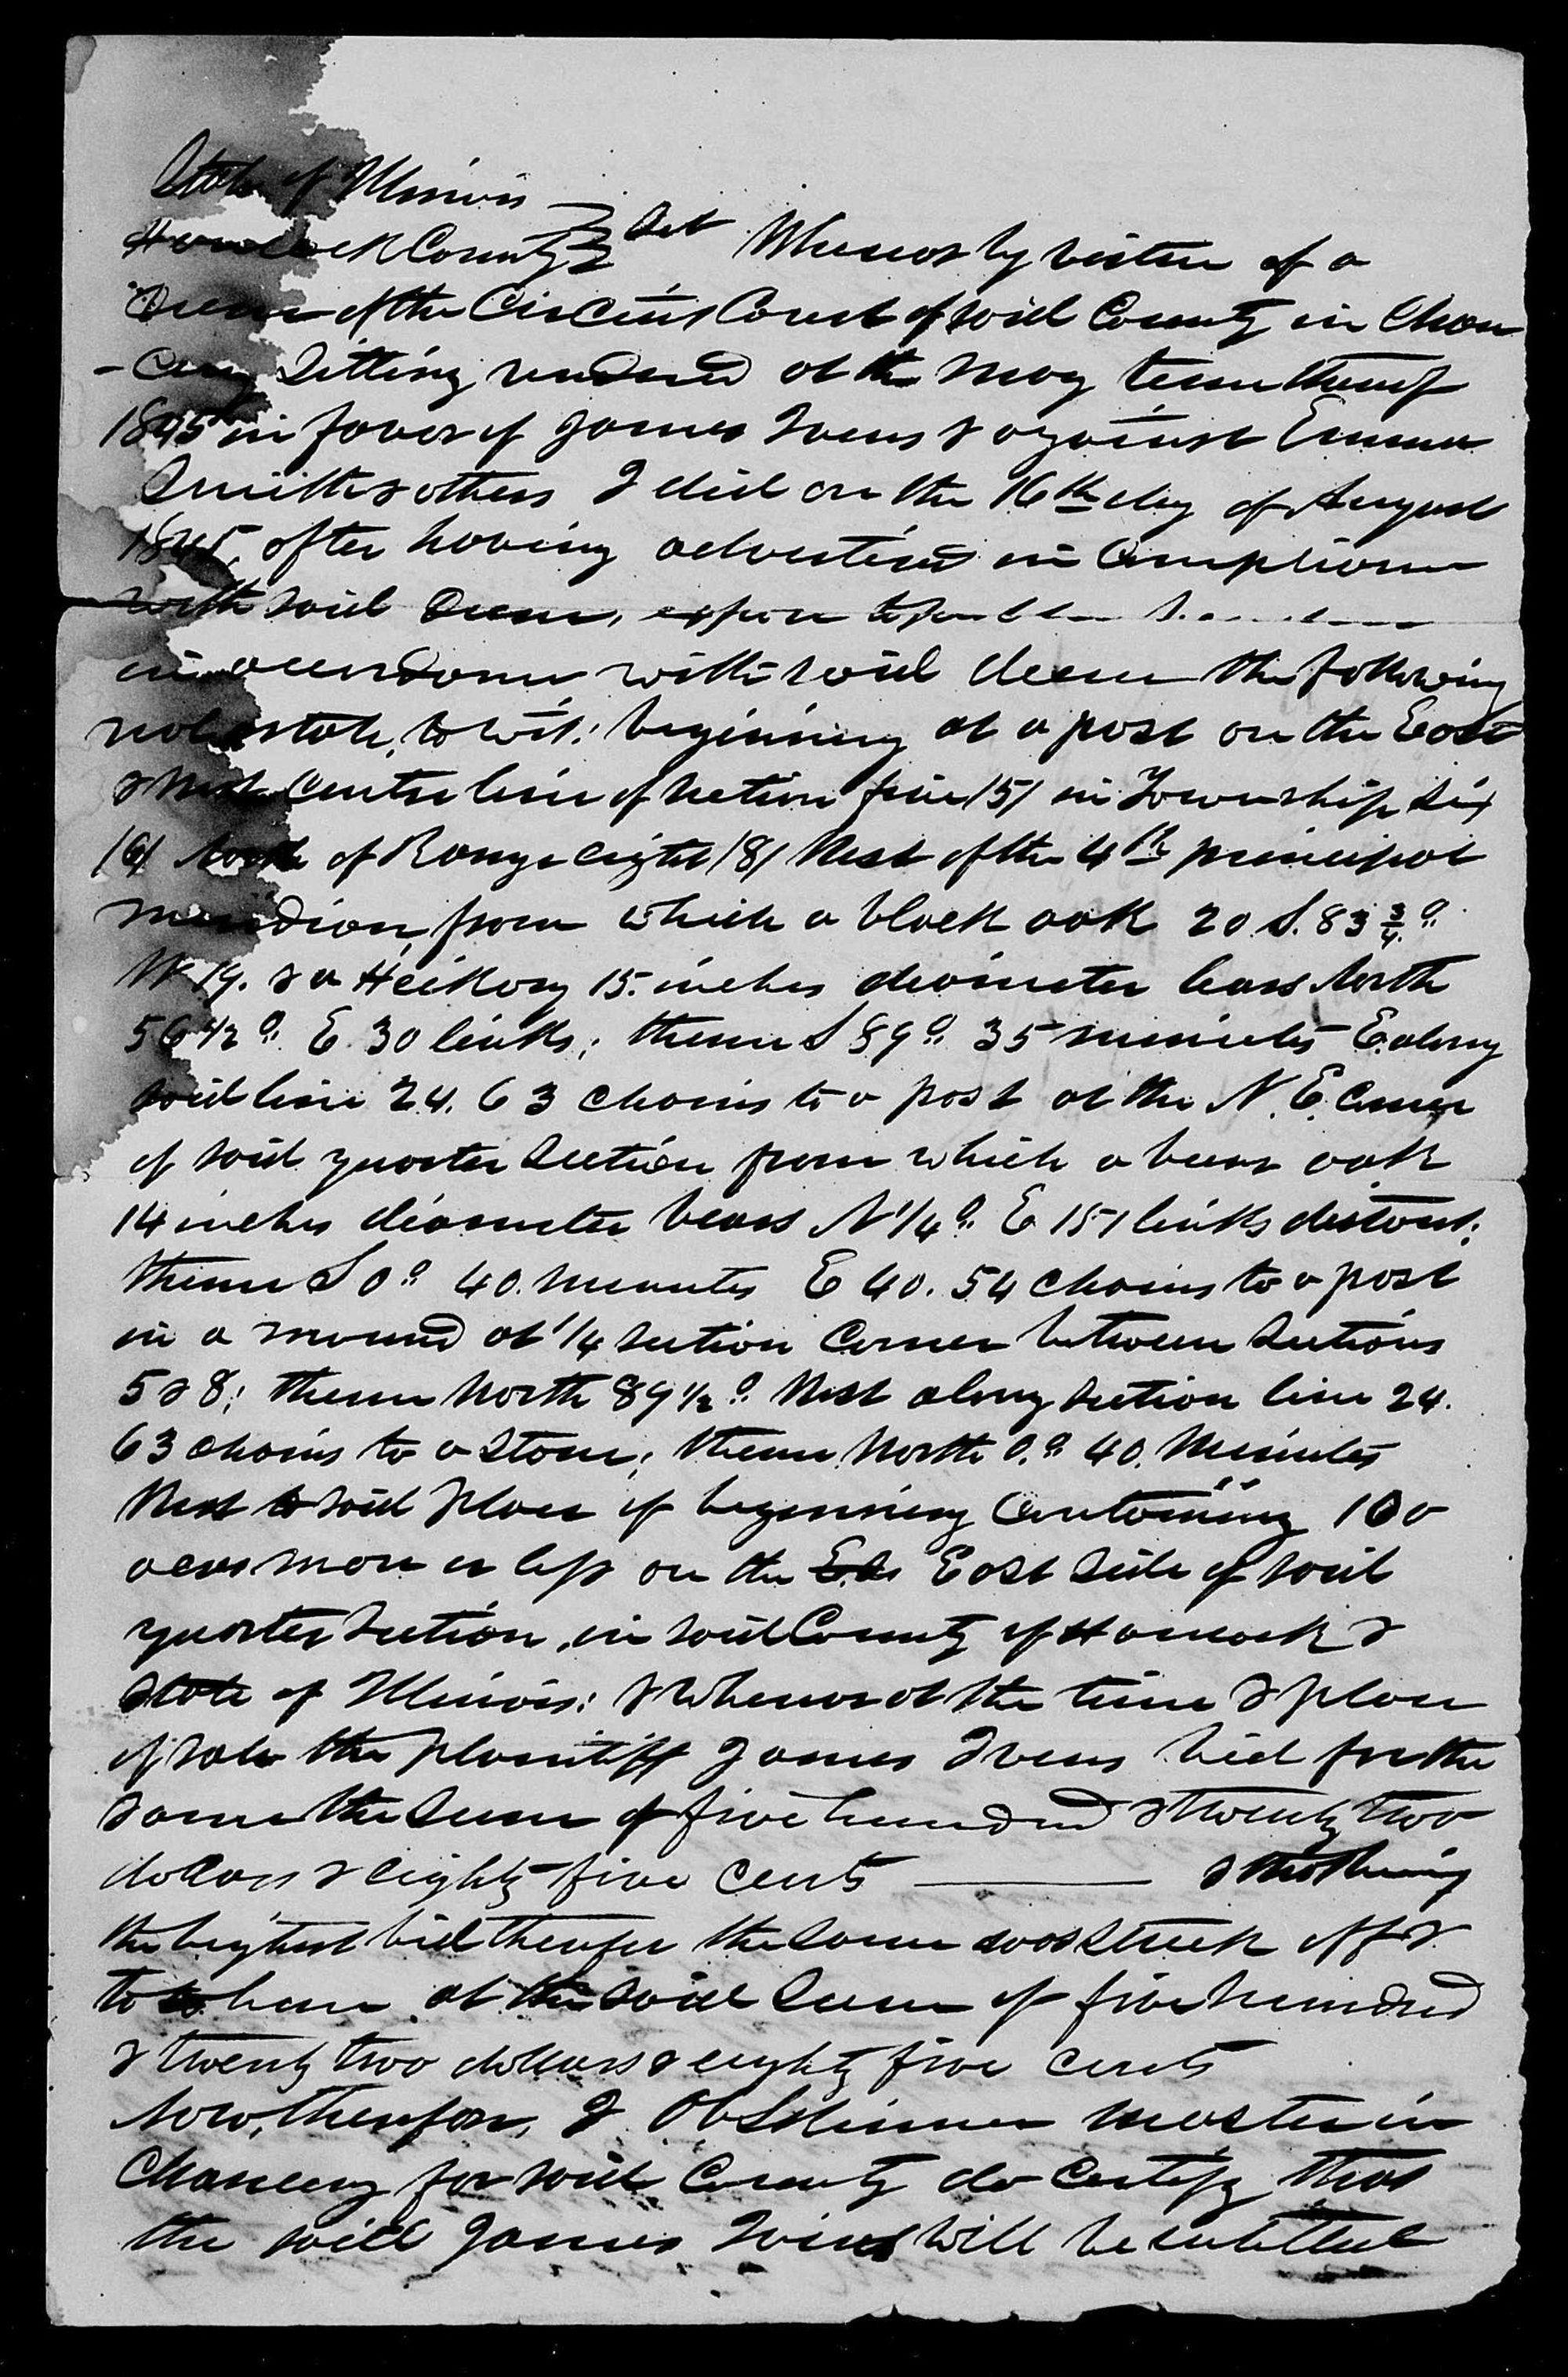 State of Illinois
Hancock County } Sct Whereas by virtue of a
Decree of the Circuit Court of said County in Chan
-cery Sitting rendered at the May term thereof
1845 in favor of James Ivens & against Emma
Smith & others I did on the 16th day of August
1845, after having advertised in Compliance
with said Decree, expose to public
in accordance with said decree the following
real estate, to wit: beginning at a post on the East
& West Centre line of Section five /5/ in Township Six
/6/ North of Range eight /8/ West of the 4th principal
meridian, from which a black oak 20 S. 83 3/4 °
W 19. & a Hickory 15 inches diameter bears North
56 1/2 ° E 30 links; thence S 89° 35 minutes E. along
said line 24. 63 chains to a post at the N. E. Corner
of said quarter Section from which a burr oak
14 inches diameter bears N 1/4 ° E 151 links distant;
thence S 0° 40. minutes E 40. 54 chains to a post
in a mound at 1/4 section Corner between Sections
5 & 8; thence North 89 1/2 ° West along Section line 24.
63 chains to a Stone; thence North 0.° 40. Minutes
West to said place of beginning Containing 100
acres more or less on the East Side of said
quarter Section, in said County of Hancock &
State of Illinois: & whereas at the time & place
of sale the plaintiff James Ivens bid for the
same the Sum of five hundred & twenty two
dollars & eighty five cents & this being
the highest bid therefor the same was Struck off &
to him at the said Sum of five hundred
& twenty two dollars & eighty five cents
Now, therefore, I O C Skinner Master in
Chancery for said County do Certify that
the said James Ivens will be entitled